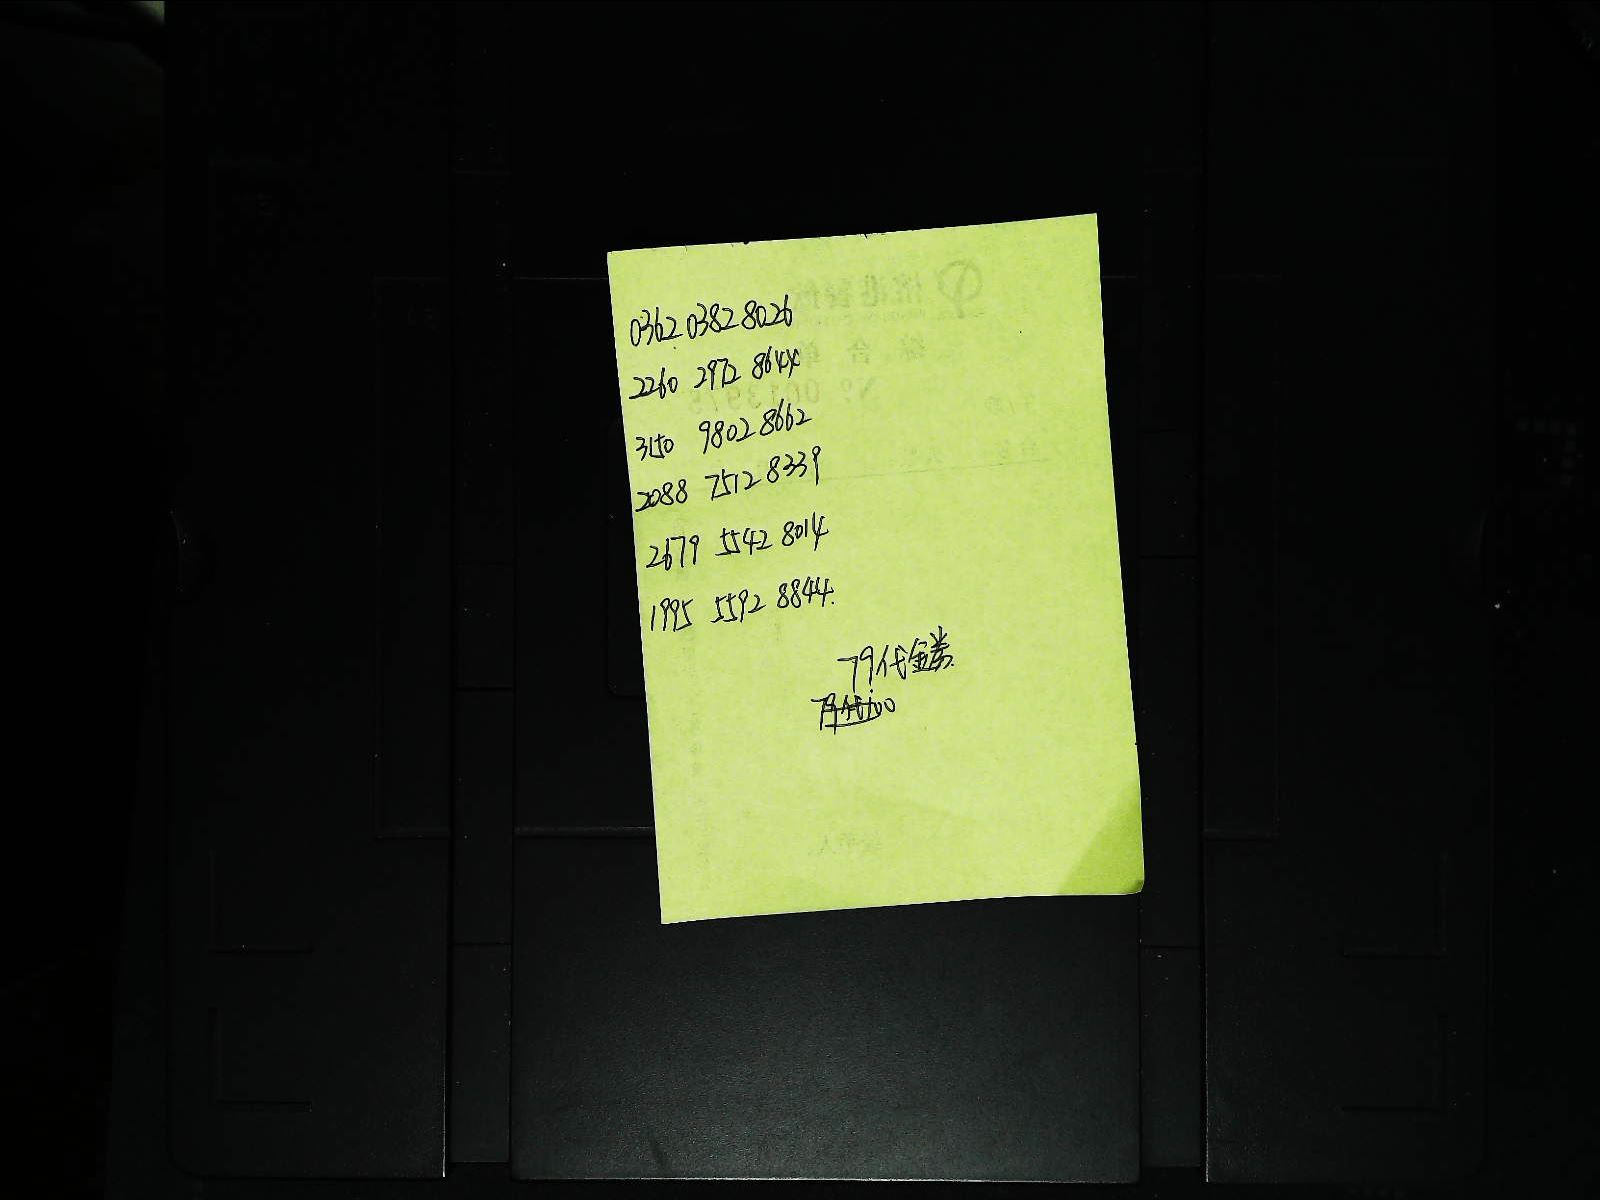 0362 0382 8026
2260 2972 8644
3150 9802 8662
2088 7512 8339
2679 5542 8014
1995 5592 8844.
79代金券
79代100